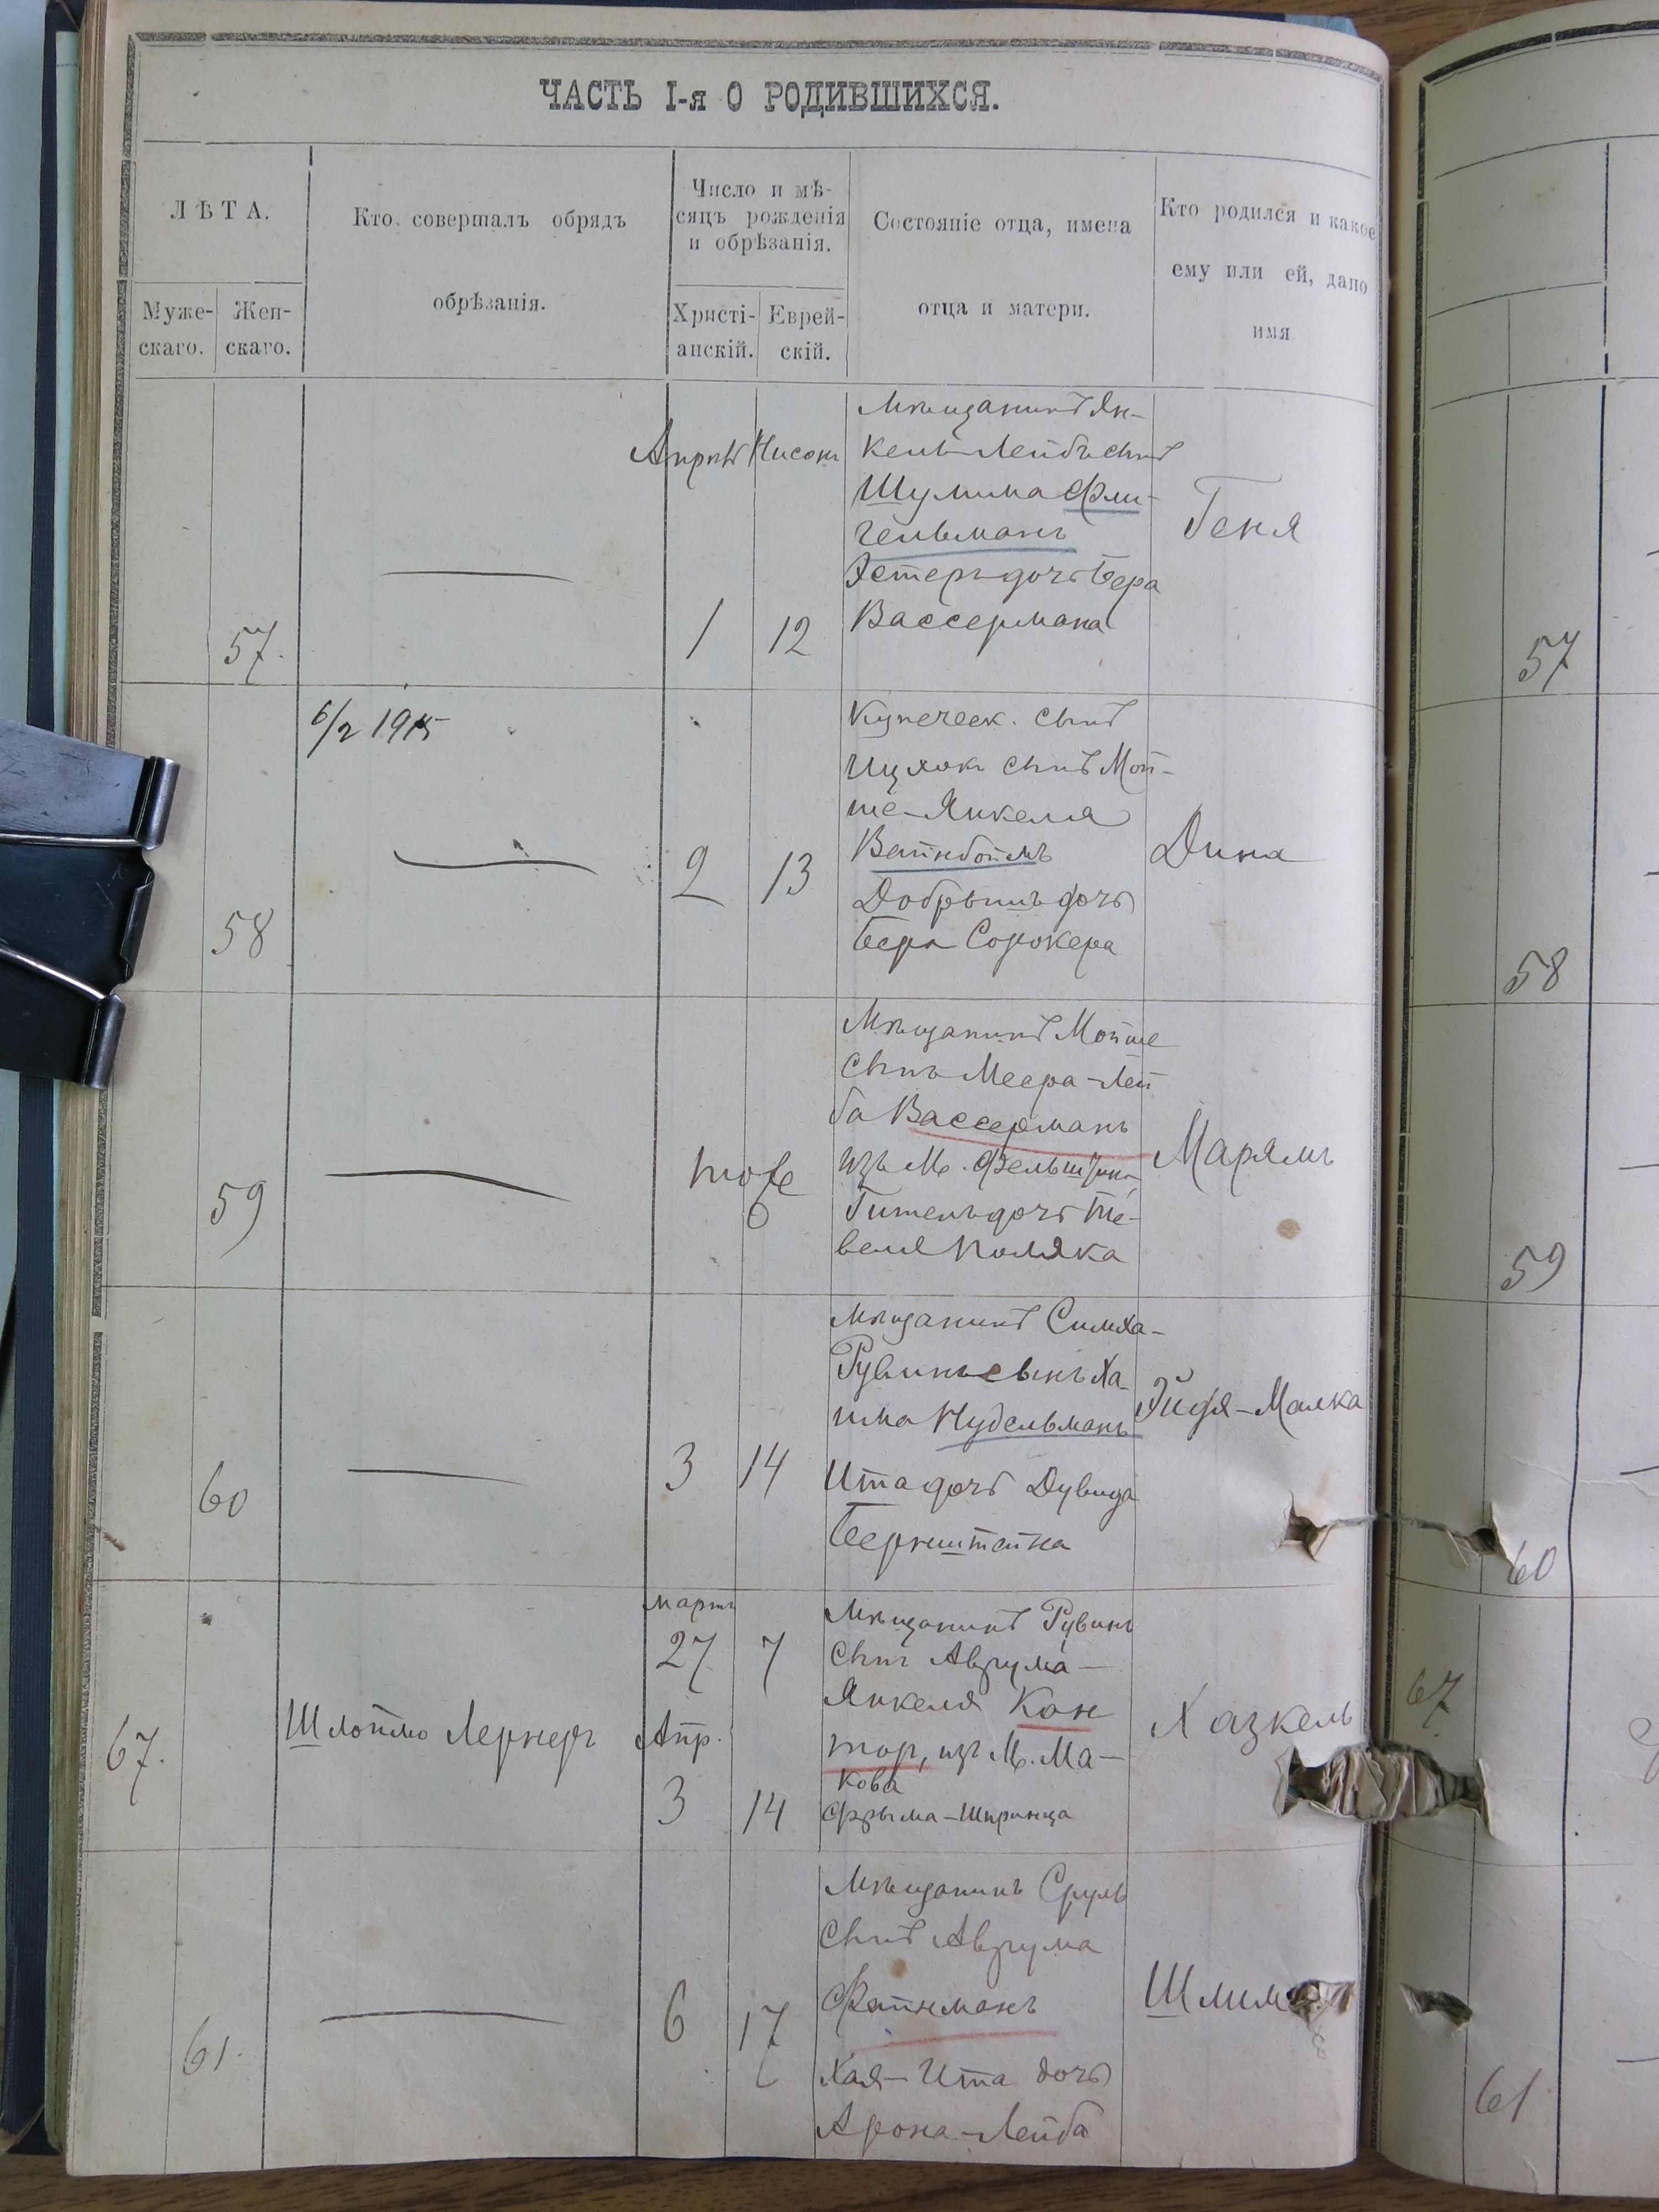 ЧАСТЬ I-я О РОДИВШИХСЯ.
ЛѢТА.
Муже-
скаго.
Жен-
скаго.
Кто совершалъ обрядъ
обрѣзанія.
Число и мѣ-
сяцъ рожденія
и обрѣзанія.
Христі-
анскій.
Еврей-
скій.
Состояніе отца, имена
отца и матери.
Кто родился и какое
ему или ей, дано
имя
57.
Апрѣль
1
Нисонъ
12
Мѣщанинъ Ян-
кель-Лейбъ сынъ
Шулима Фли-
гельманъ
Эстеръ дочь Бера
Вассермана
Геня
57
58
6/2 1915
2
13
Купеческ. сынъ
Ицхокъ сынъ Мой-
ше-Янкеля
Вайнбоймъ
Добрышъ дочь
Бера Сорокера
Дина
58
59
тоже
Мѣщанинъ Мойше
сынъ Меера-Лей
ба Вассерманъ
изъ М. Фельштина
Гитель дочь Те-
веля Поляка
Марямъ
59
60
3
14
Мѣщанинъ Симха-
Рувинъ сынъ Ха-
има Нудельманъ
Ита дочь Дувида
Бернштейна
Эйдя-Малка
60
67.
Шлоймо Лернеръ
мартъ
27
7
Апр.
3
14
Мѣщанинъ Рувинъ
сынъ Аврума-
Янкеля Кан
тор, изъ М. Ма-
кова
Фрыма-Шпринца
Хазкель
67
61.
6
17
Мѣщанинъ Сруль
сынъ Аврума
Файнманъ
Хая-Ита дочь
Арона-Лейба
61